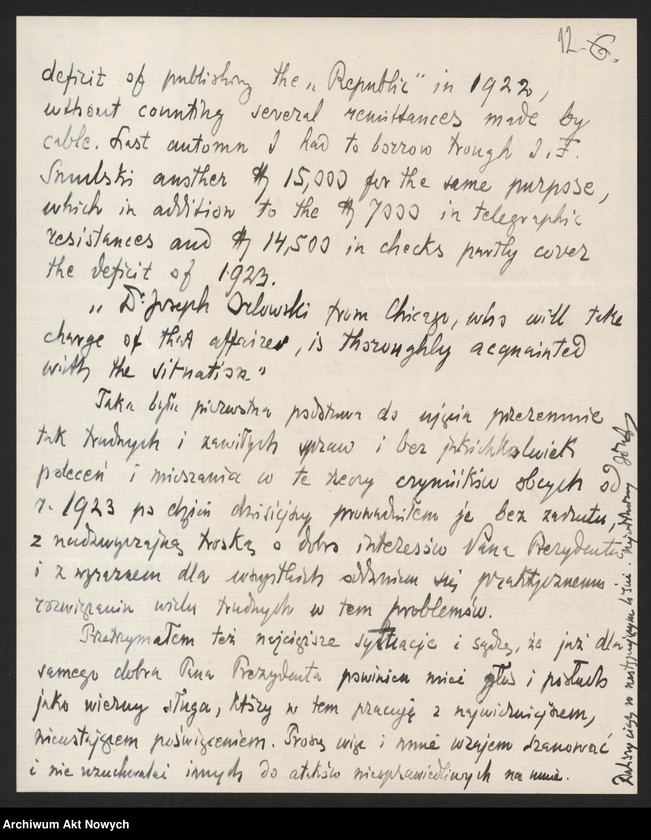 12-6.
deficit of publishing the „Republic" in 1922,
without counting several remittances made by
cable. Last autumn I had to borrow trough J. F.
Smulski another $ 15,000 for the same purpose,
which in addition to the $ 7000 in telegraphic
resistances and $ 14,500 in checks partly cover
the deficit of 1923.
„Dr. Joseph Orlowski from Chicago, who will take
charge of that affaires, is thoroughly acquainted
with the situation"
Taka była pierwotna podstawa do ujęcia przezemnie
tak trudnych i zawiłych spraw i bez jakichkolwiek
poleceń i mieszania w te rzeczy czynników obcych od
r. 1923 po dzień dzisiejszy prowadziłem je bez zarzutu,
z nadzwyczajną troską o dobro interesów Pana Prezydenta
i z wyrazem dla wszystkich oddaniem się praktycznemu
rozwiązaniu wielu trudnych w tem problemów.
Przetrzymałem też najcięższe sytuacje i sądzę, że już dla
samego dobra Pana Prezydenta powinien mieć głos i posłuch
jako wierny sługa, który w tem pracuję z najwierniejszem,
nieustającem poświęceniem. Proszę więc i mnie wzajem szanować
i nie wzuchwalać innych do ataków niesprawiedliwych na mnie.
Dalszy ciąg w następującym liście.
Archiwum Akt Nowych